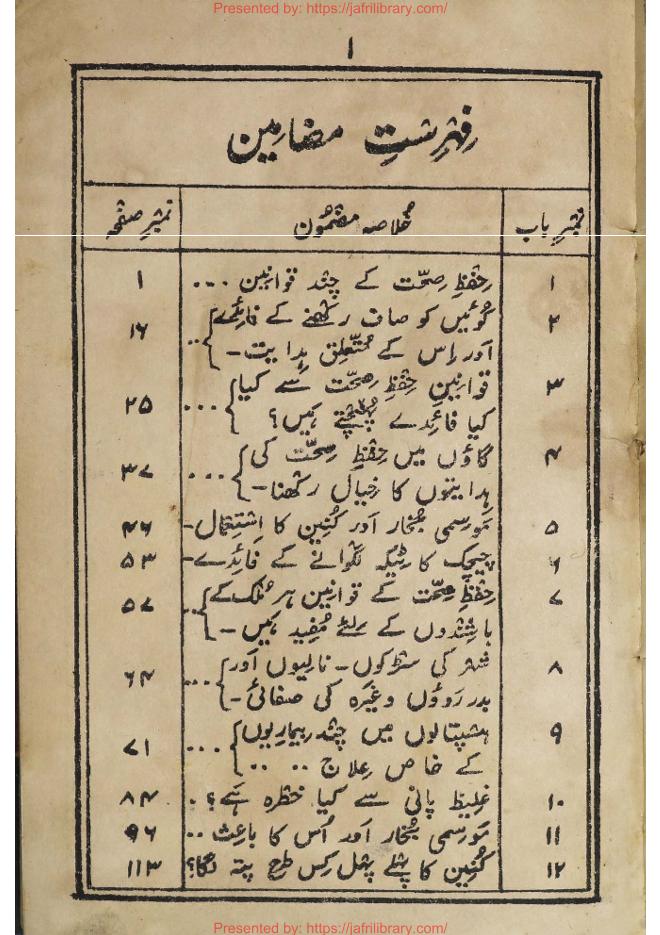 Presented by: https://jafrilibrary.com/
۱
فہرستِ مضامین
نمبرِ باب خُلاصہ مضمُون نمبرِ صفحہ
۱ حِفظِ صِحّت کے چند قوانین ... ۱
۲ کُوئیں کو صاف رکھنے کے فائدے
اَور اِس کے مُتعلِّق ہِدایت - .. ۱۶
۳ قوانینِ حِفظِ صِحّت سے کیا
کیا فائدے پہنچتے ہیں؟ ... ۲۵
۴ گاؤں میں حِفظِ صِحّت کی
ہِدایتوں کا خیال رکھنا - ... ۳۷
۵ مَوسمی بُخار اَور کُنین کا اِستِعمال - ۴۶
۶ چیچک کا ٹیکہ لگوانے کے فائدے - ۵۳
۷ حِفظِ صِحّت کے قوانین ہر مُلک کے
باشندوں کے لئے مُفِید ہیں - .. ۵۷
۸ شہر کی سڑکوں - نالیوں اَور
بدر رَوؤں وغیرہ کی صفائی - ... ۶۴
۹ ہسپتالوں میں چند بیماریوں
کے خاص عِلاج .. .. ... ۷۱
۱۰ غلیظ پانی سے کیا خطرہ ہَے؟ . ۸۴
۱۱ مَوسمی بُخار اَور اُس کا باعِث .. ۹۶
۱۲ کُنین کا پہلے پہل کِس طرح پتہ لگا؟ ۱۱۳
Presented by: https://jafrilibrary.com/